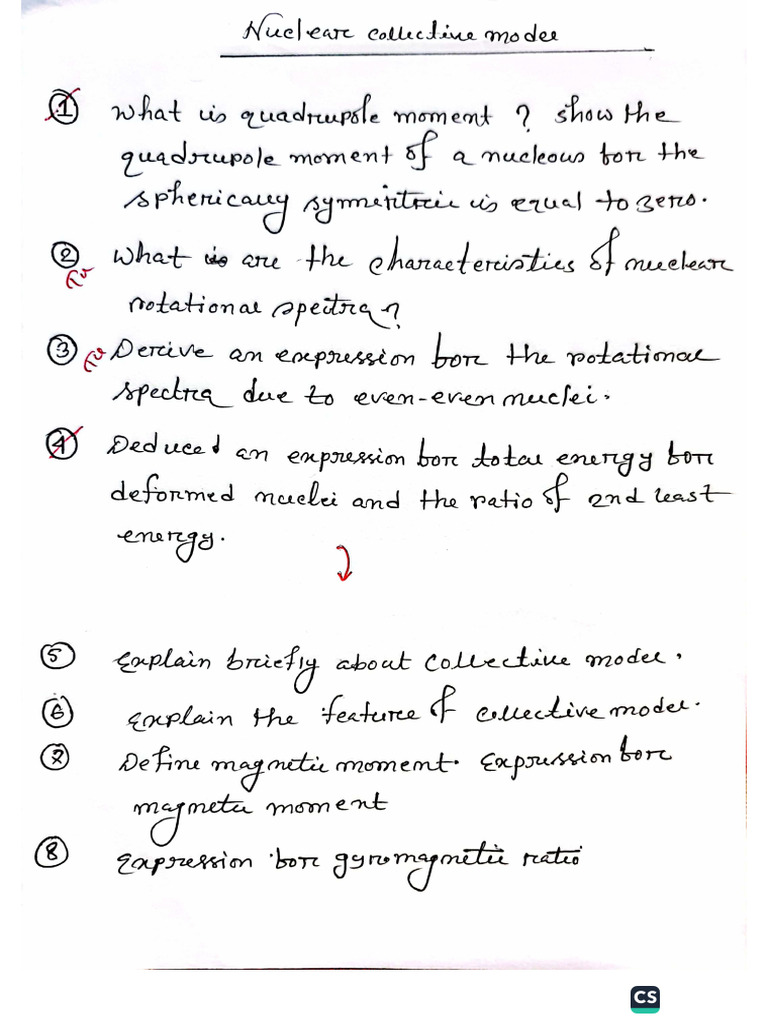 Nuclear collective model
① What is quadrupole moment ? show the
quadrupole moment of a nucleous for the
spherically symmetric is equal to zero.
② What is are the characteristics of nuclear
rotational spectra?
③ Derive an expression for the rotational
spectra due to even-even nuclei.
④ Deduced an expression for total energy for
deformed nuclei and the ratio of 2nd least
energy.
⑤ Explain briefly about collective model.
⑥ explain the feature of collective model.
⑦ Define magnetic moment. Expression for
magnetic moment
⑧ Expression for gyromagnetic ratio
CS